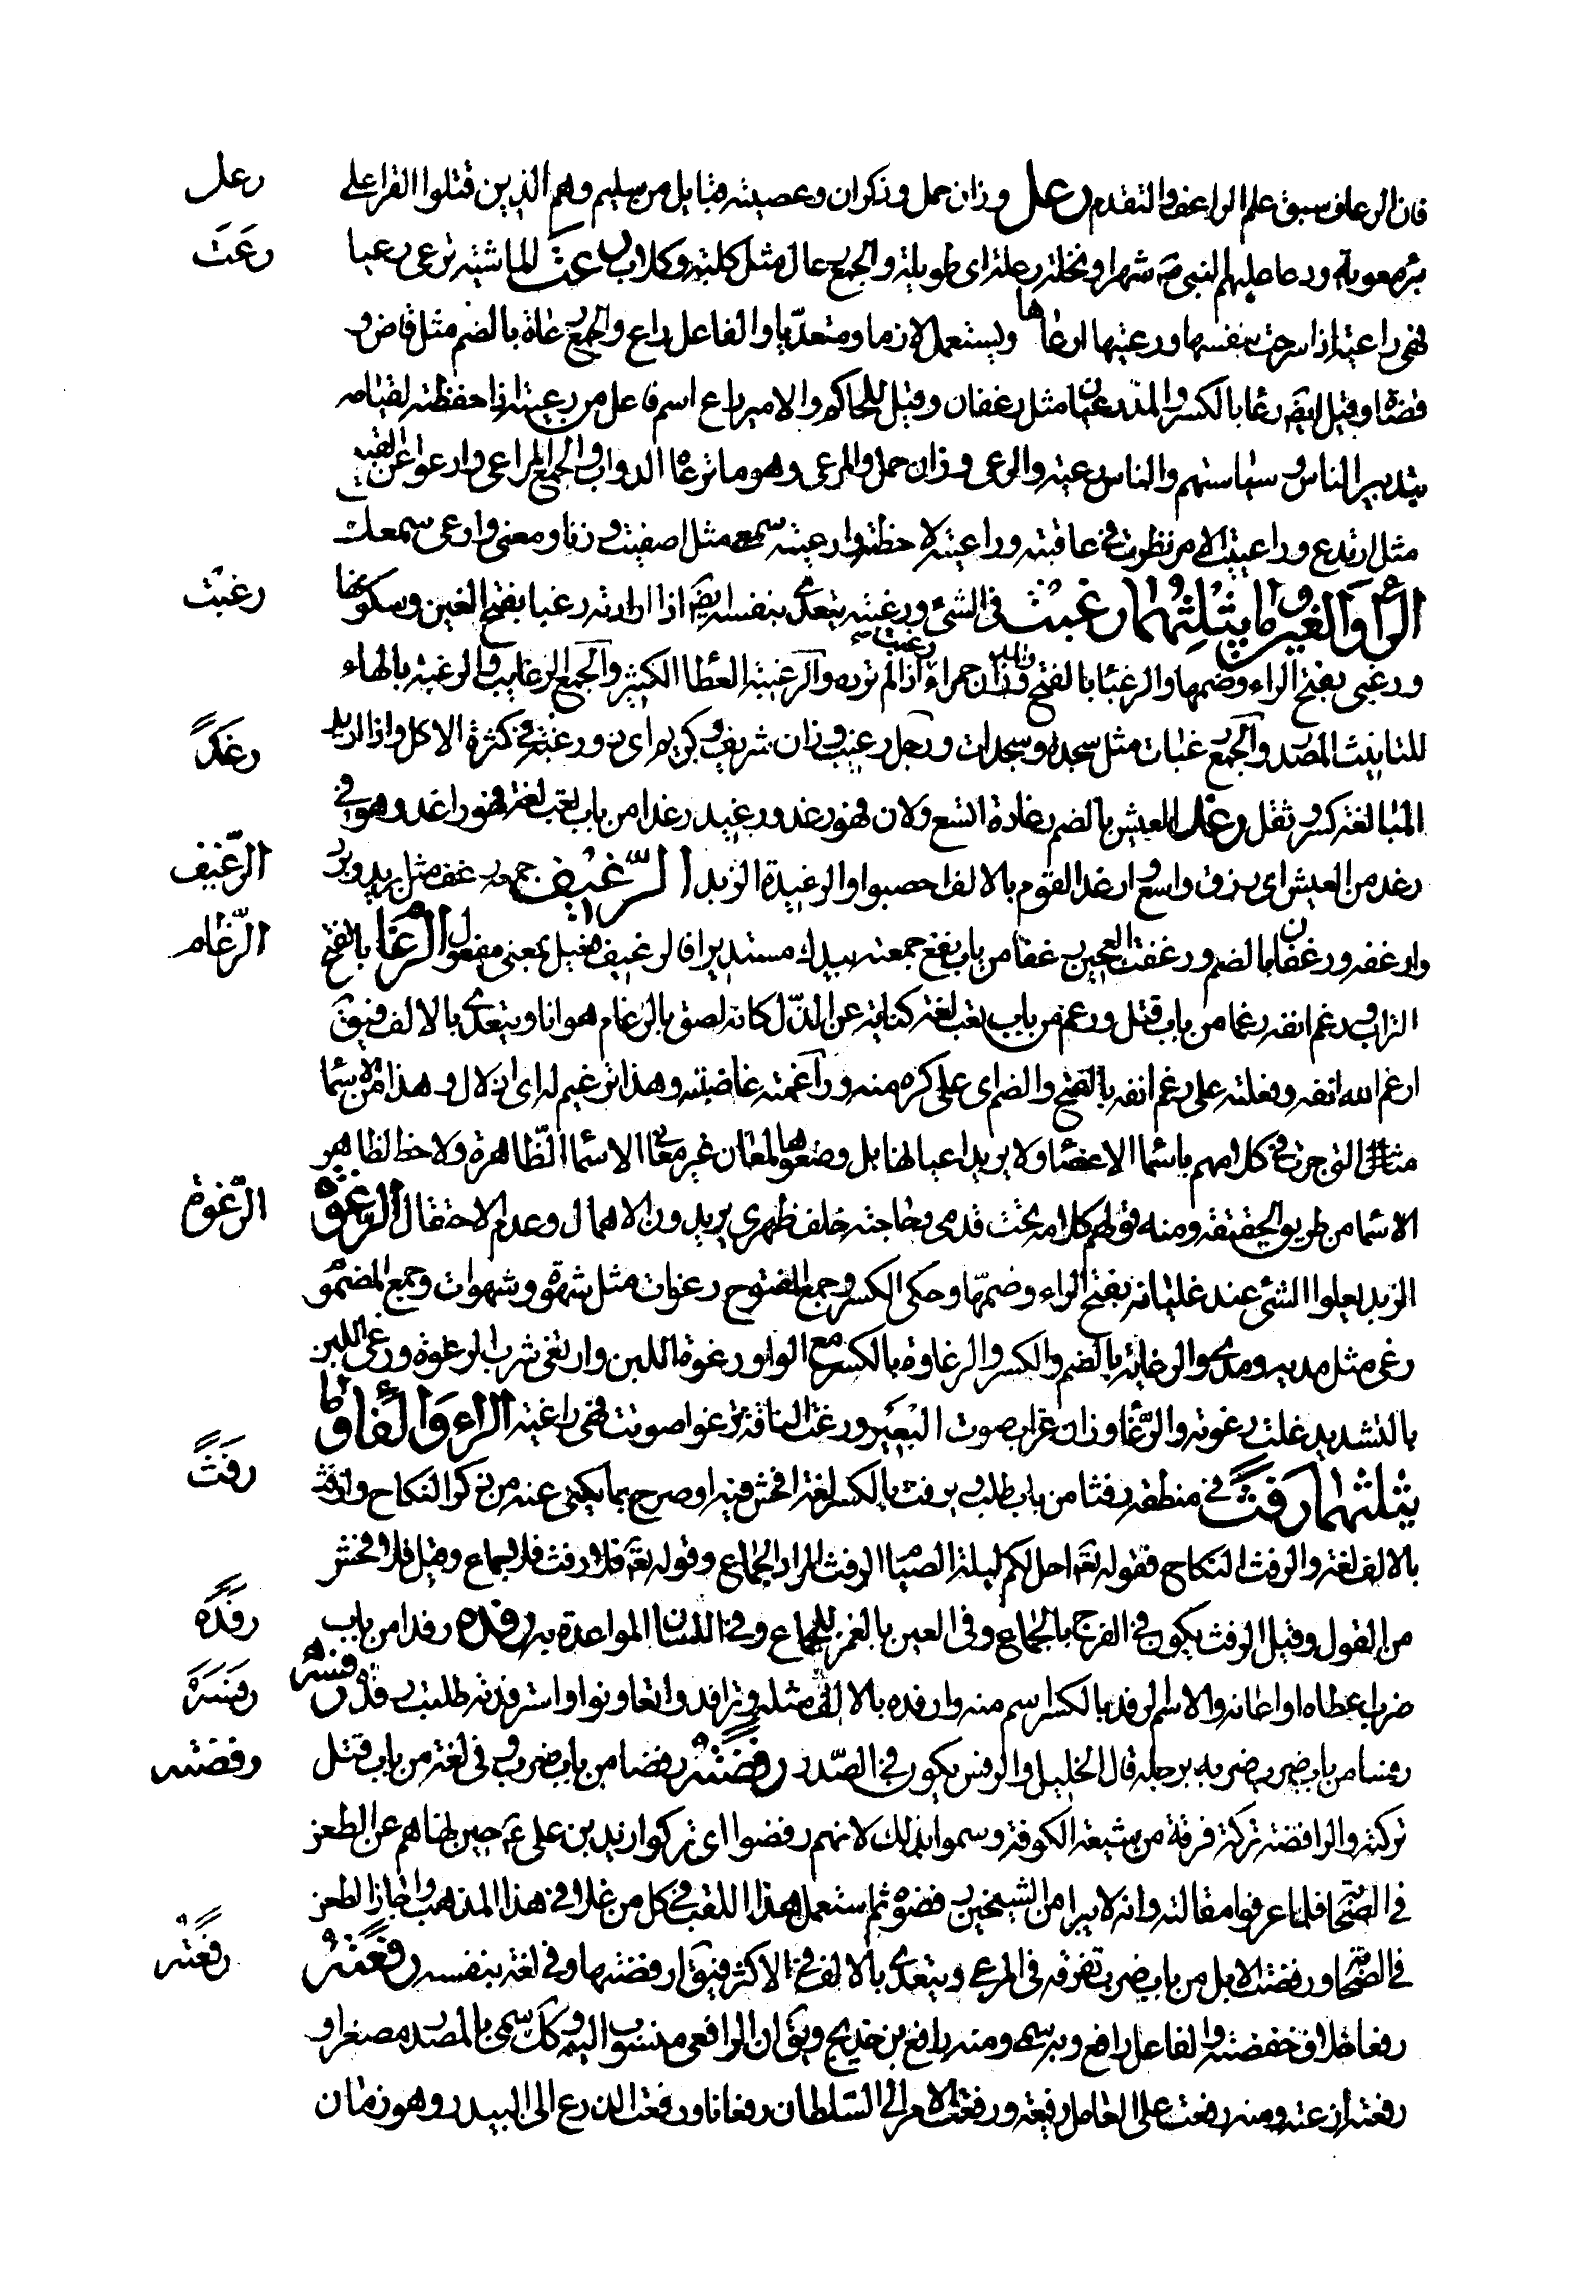 فان الرعاف سبق علم الراعف والتقدم رعل وزان حمل وذكوان وعصية قبايل من سليم وهم الذين قتلوا القرا على
رعل
بئر معوية ودعا عليهم النبي صه شهرا ونخلة رعلة اى طويلة والجمع رعال مثل كلبة وكلاب رعت الماشية ترعى رعيا
رعت
فهى راعية اذا سرحت بنفسها ورعيتها ارعاها ويستعمل لازما ومتعديا والفاعل راع والجمع رعاة بالضم مثل قاض و
قضاة وقيل ايضه رعا بالكسر والمد ورعيان مثل رغفان وقيل للحاكم والامير راع اسم فاعل من رعيته اذا حفظته لقيامه
بتدبير الناس وسياستهم والناس رعية والرعى وزان حمل والمرعى وهو ما ترعاه الدواب والجمع المراعى وارعوا عن القبيح
مثل ارتدع وراعيت الامر نظرت فى عاقبته وراعيته لاحظته وارعيته سمعى مثل اصغيت وزنا ومعنى وارعنى سمعك
الراء والغين وما يثلثهما رغبت فى الشئ ورغبته يتعدى بنفسه ايضه اذا اردته رغبا بفتح الغين وسكونها
رغبت
ورغبى بفتح الراء وضمها والرغبا بالفتح والمد وزان حمراء ورغبت عنه اذا لم ترده والرغيبة العطا الكثير والجمع الرغايب والرغبة بالهاء
للتانيث المصدر والجمع رغبات مثل سجدة وسجدات ورجل رغيب وزان شريف وكريم اى ذو رغبة فى كثرة الاكل واذا اريد
رغد
المبالغة كسر وثقل رغد العيش بالضم رغادة اتسع ولان فهو رغد ورغيد ورغد رغدا من باب تعب لغة فهو راغد وهو فى
رغد من العيش اى رزق واسع وارغد القوم بالالف اخصبوا والرغيدة الزبد الرغيف جمعه رغف مثل بريد وبرد
الرغيف
وارغفه ورغفان بالضم ورغفت العجين رغفا من باب نفع جمعته بيدك مستديرا فالرغيف فعيل بمعنى مفعول الرغام بالفتح
الرغام
التراب ورغم انفه رغما من باب قتل ورغم من باب تعب لغة كناية عن الذل كانه لصق بالرغام هوانا ويتعدى بالالف فيقه
ارغم الله انفه وفعلته على رغم انفه بالفتح والضم اى على كره منه وراغمته غاضبته وهذا ترغيم له اى اذلال وهذا من الاسما
التى جرت فى كلامهم باسما الاعضا ولا يريد اعيانها بل وضعوها لمعان غير معانى الاسما الظاهرة ولا حظ لظاهر
الاسما من طريق الحقيقة ومنه قولهم كلامه تحت قدمى وحاجته خلف ظهرى يريدون الاهمال وعدم الاحتفال الرغوة
الرغوة
الزبد يعلوا الشئ عند غليانه بفتح الراء وضمها وحكى الكسر وجمع المفتوح رغوات مثل شهوة وشهوات وجمع المضموم
رغى مثل مدية ومدى والرغاية بالضم والكسر والرغاوة بالكسر مع الواو رغوة اللبن وارتغى شرب الرغوة ورغى اللبن
بالتشديد غلت رغوته والرغا وزان غراب صوت البعير ورغت الناقة ترغوا صوتت فهى راغية الراء والفا وما
يثلثهما رفث فى منطقه رفثا من باب طلب ويرفث بالكسر لغة افحش فيه او صرح بما يكنى عنه من ذكر النكاح وارفث
رفث
بالالف لغة والرفث النكاح فقوله تعه احل لكم ليلة الصيام الرفث المراد الجماع وقوله تعه فلا رفث فلا جماع وقيل فلا فحش
من القول وقيل الرفث يكون فى الفرج بالجماع وفى العين بالغمز للجماع وفى اللسان المواعدة به رفده رفدا من باب
رفده
ضرب اعطاه او اعانه والاسم الرفد بالكسر اسم منه وارفده بالالف مثله وترافدوا تعاونوا واسترفدته طلبت رفده رفسه
رفسه
رفسا من باب ضرب ضربه برجله قال الخليل والرفس يكون فى الصدر رفضته رفضا من باب ضرب وفى لغة من باب قتل
رفضته
تركته والرافضة فرقة من شيعة الكوفة وسموا بذلك لانهم رفضوا اى تركوا زيد بن على عم حين نهاهم عن الطعن
فى الصحابة فلما عرفوا مقالته وانه لا يبرا من الشيخين رفضوه ثم استعمل هذا اللقب فى كل من غلا فى هذا المذهب واجاز الطعن
فى الصحابة ورفضت الابل من باب ضرب تفرقه فى المرعى ويتعدى بالالف فى الاكثر فيقه ارفضتها وفى لغة بنفسه رفعته
رفعته
رفعا خلاف خفضته والفاعل رافع وبه سمى ومنه رافع بن خديج ويقه ان الرافعى منسوب اليه وكك سمى بالمصدر مصغرا و
رفعته اذعته ومنه رفعت على العامل رفيعة ورفعت الامر الى السلطان رفعانا ورفعت الزرع الى البيدر وهو زمان